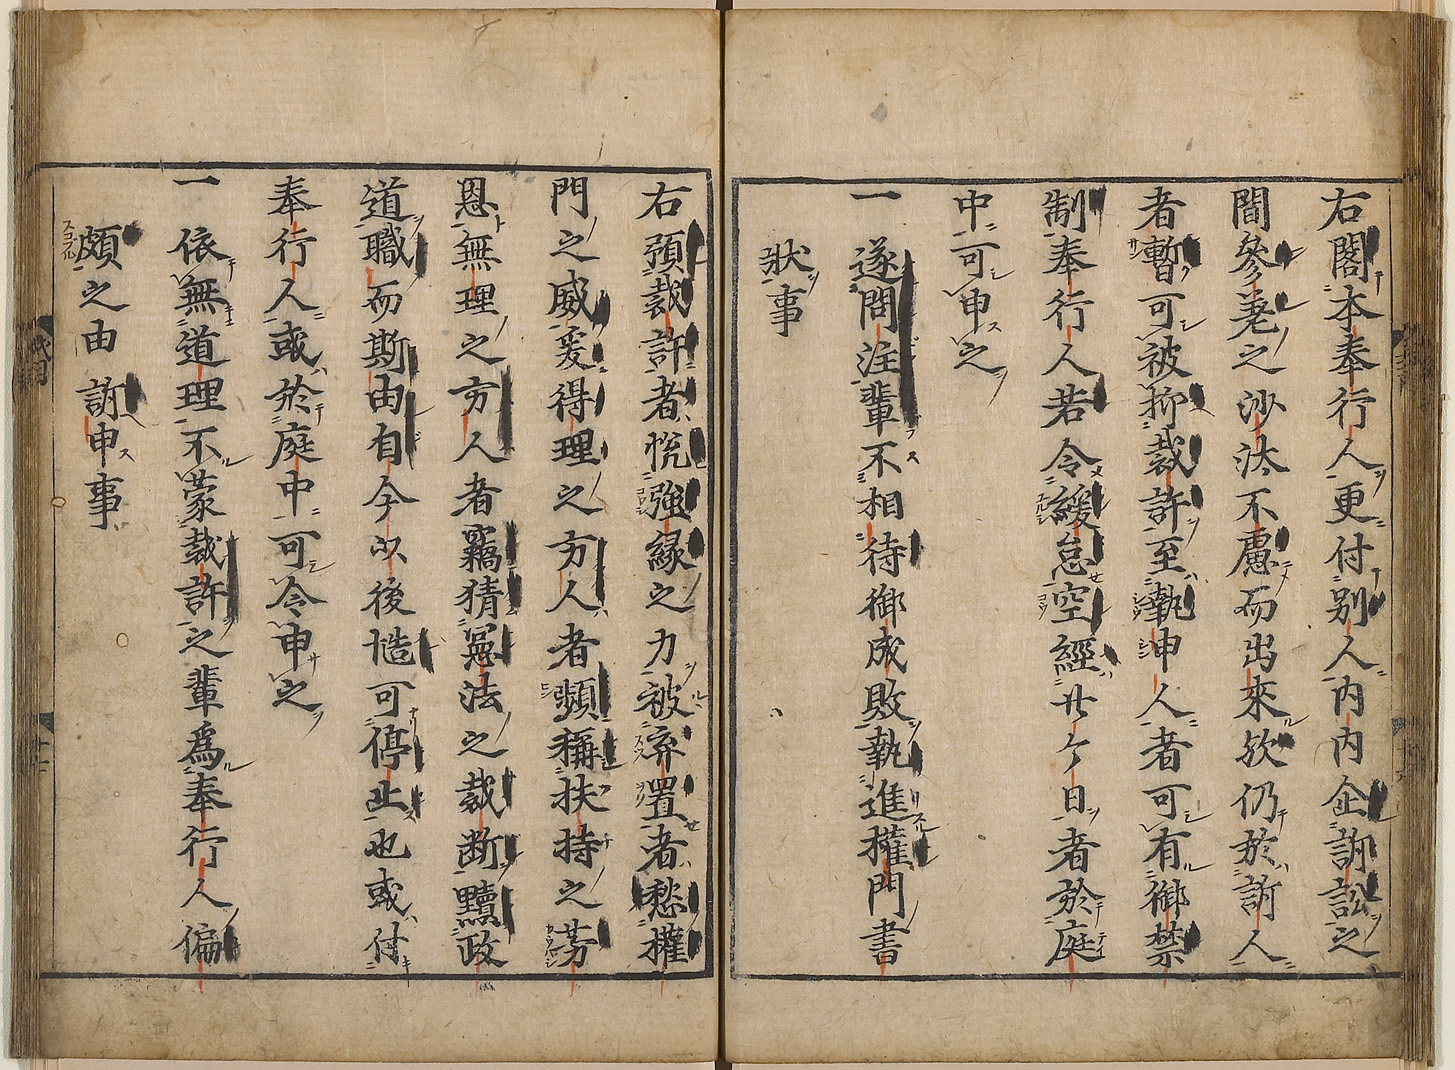 右閣本奉行人更付別人内内企訴訟之
間參差之沙汰不慮而出來欤仍於訴人
者暫可被抑裁許至執申人者可有御禁
制奉行人若令緩怠空經廿ケ日者於庭
中可申之
一 遂問注輩不相待御成敗執進權門書
狀事
右預裁許者悦強縁之力被弃置者愁權
門之威爰得理之方人者頻稱扶持之芳
恩無理之方人者竊猜憲法之裁断黷政
道職而斯由自今以後慥可停止也或付
奉行人或於庭中可令申之
一 依無道理不蒙裁許之輩爲奉行人偏
頗之由訴申事